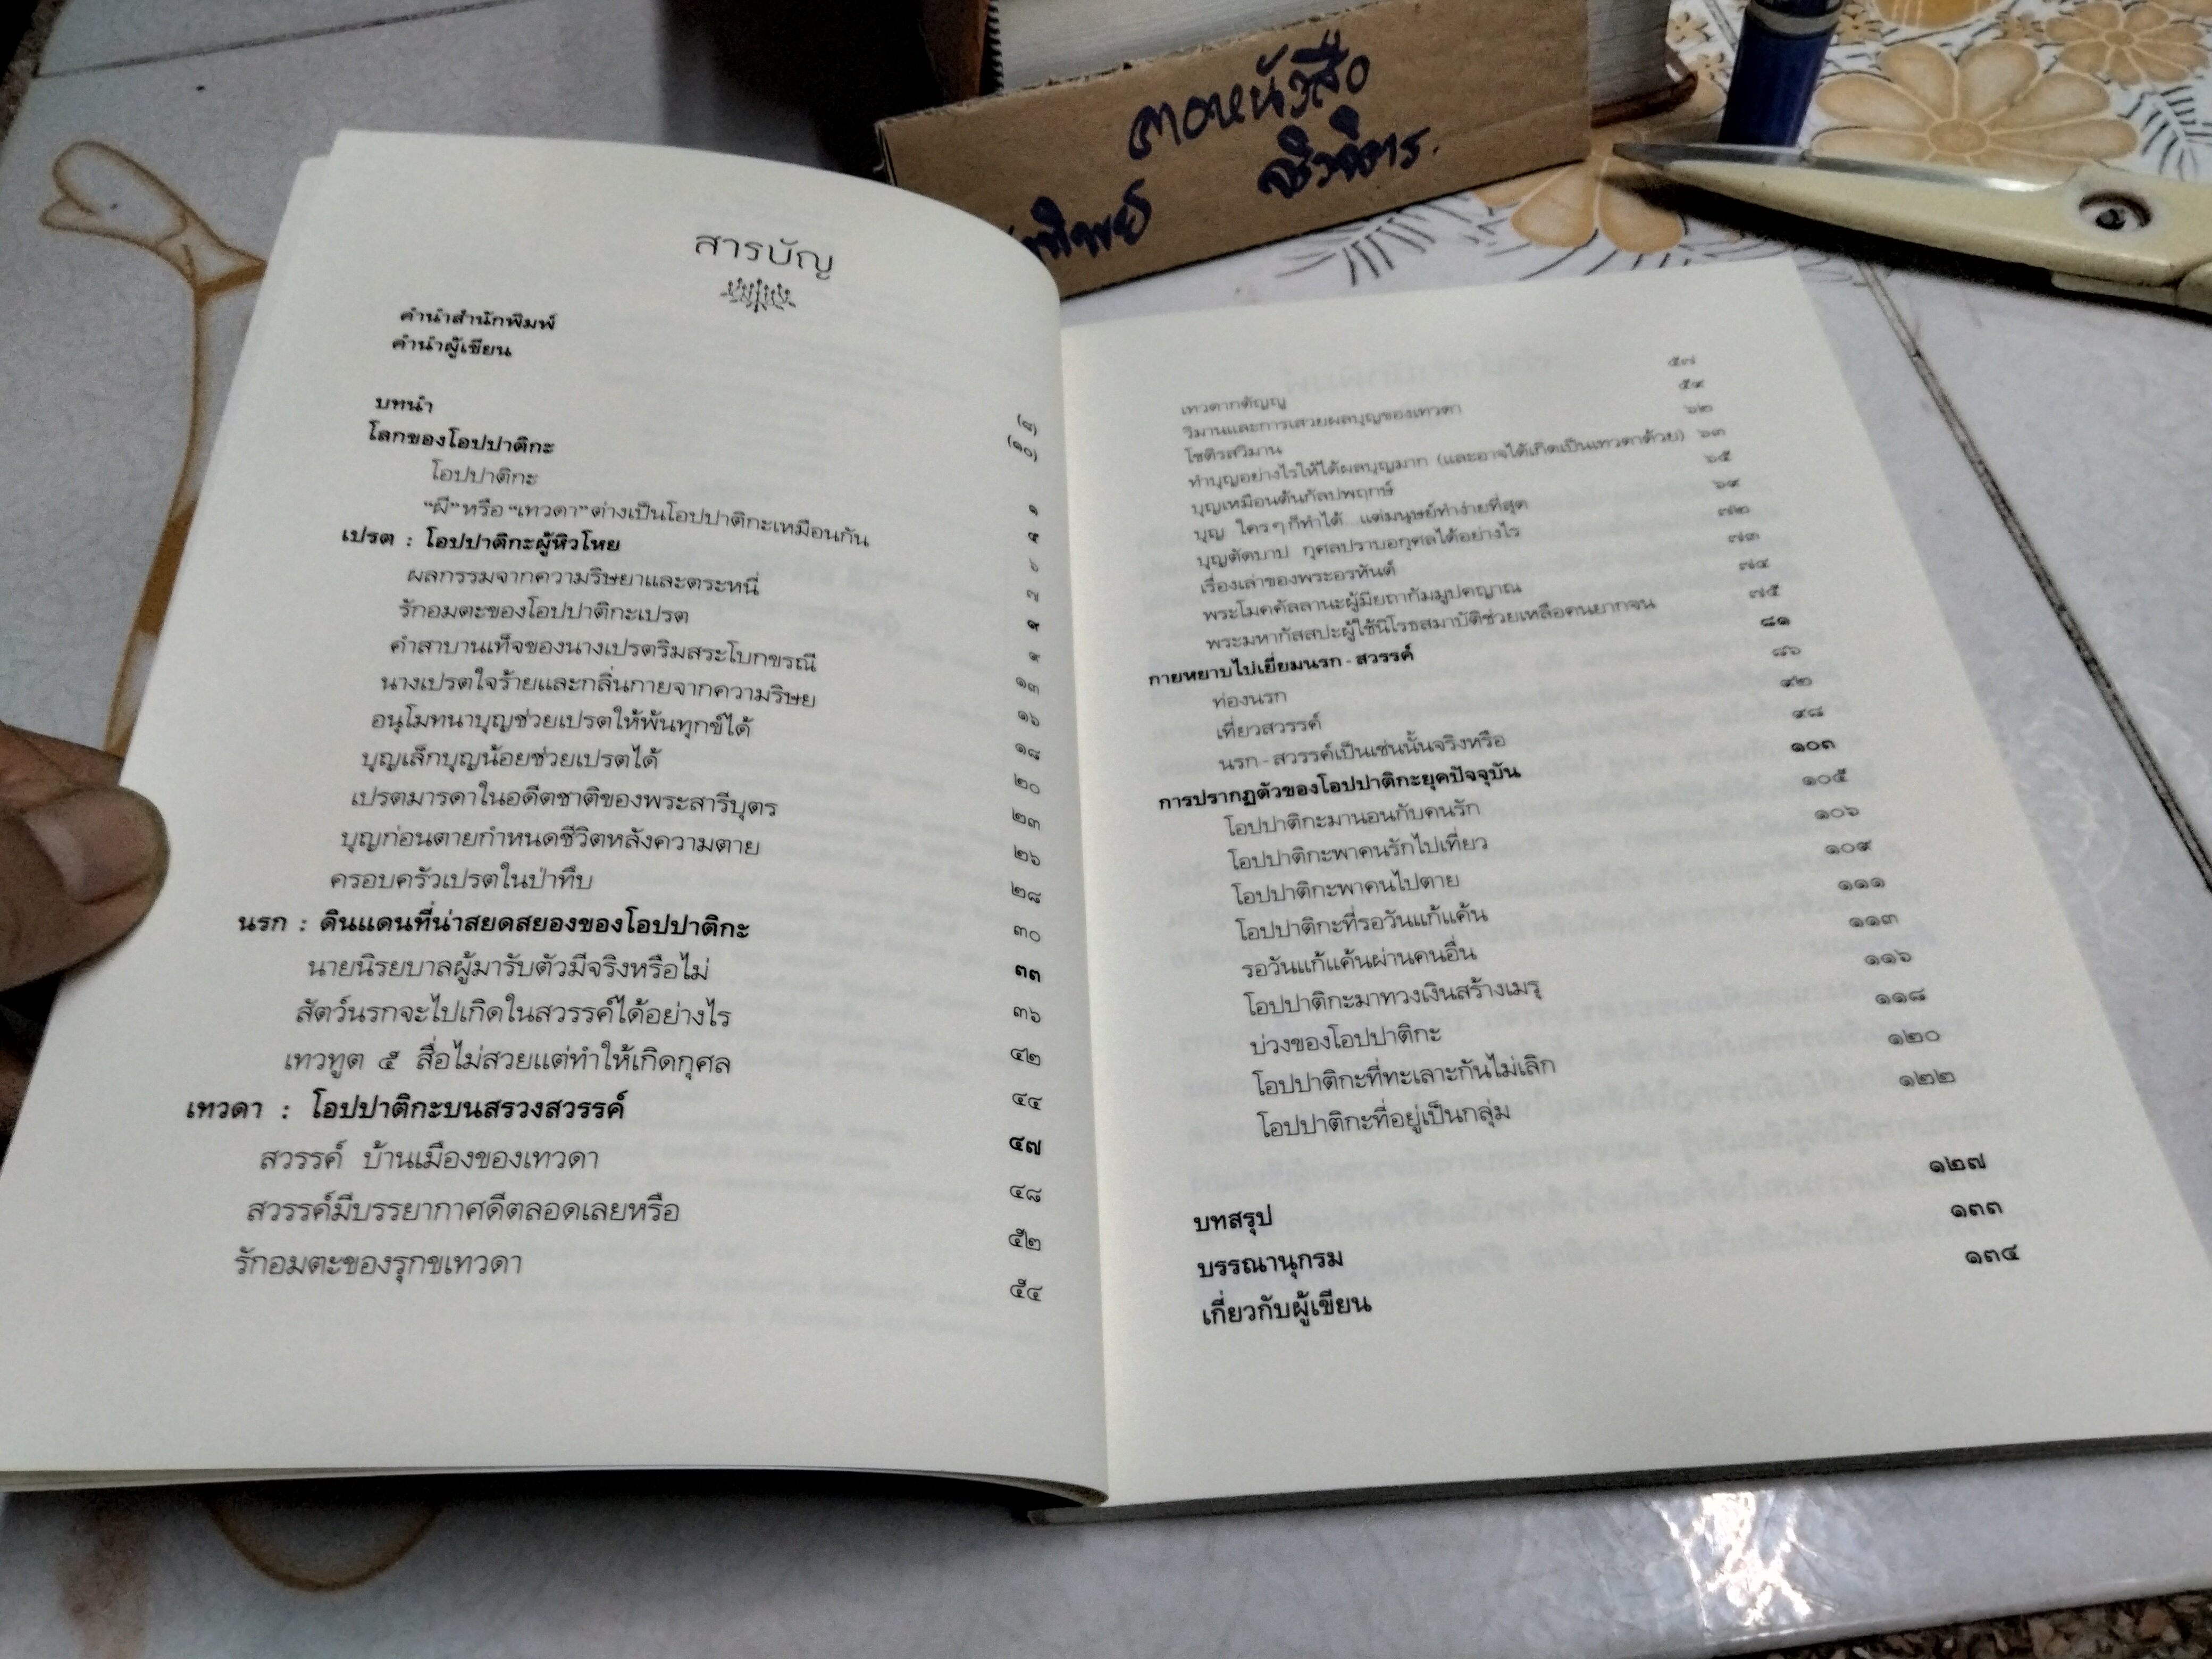 หนังสือ
สารบัญ
คำนำสำนักพิมพ์ (๘)
คำนำผู้เขียน (๑๐)
บทนำ ๑
โลกของโอปปาติกะ ๕
โอปปาติกะ ๖
“ผี” หรือ “เทวดา” ต่างเป็นโอปปาติกะเหมือนกัน ๗
เปรต : โอปปาติกะผู้หิวโหย ๙
ผลกรรมจากความริษยาและตระหนี่ ๙
รักอมตะของโอปปาติกะเปรต ๑๓
คำสาบานเท็จของนางเปรตริมสระโบกขรณี ๑๖
นางเปรตใจร้ายและกลิ่นกายจากความริษย ๑๘
อนุโมทนาบุญช่วยเปรตให้พ้นทุกข์ได้ ๒๐
บุญเล็กบุญน้อยช่วยเปรตได้ ๒๓
เปรตมารดาในอดีตชาติของพระสารีบุตร ๒๖
บุญก่อนตายกำหนดชีวิตหลังความตาย ๒๘
ครอบครัวเปรตในป่าทึบ ๓๐
นรก : ดินแดนที่น่าสยดสยองของโอปปาติกะ ๓๓
นายนิรยบาลผู้มารับตัวมีจริงหรือไม่ ๓๖
สัตว์นรกจะไปเกิดในสวรรค์ได้อย่างไร ๔๒
เทวทูต ๕ สื่อไม่สวยแต่ทำให้เกิดกุศล ๔๔
เทวดา : โอปปาติกะบนสรวงสวรรค์ ๔๗
สวรรค์ บ้านเมืองของเทวดา ๔๘
สวรรค์มีบรรยากาศดีตลอดเลยหรือ ๕๒
รักอมตะของรุกขเทวดา ๕๔
เทวดากตัญญู ๕๗
วิมานและการเสวยผลบุญของเทวดา ๕๙
โชติรสวิมาน ๖๒
ทำบุญอย่างไรให้ได้ผลบุญมาก (และอาจได้เกิดเป็นเทวดาด้วย) ๖๓
บุญเหมือนต้นกัลปพฤกษ์ ๖๕
บุญ ใครๆ ก็ทำได้ แต่มนุษย์ทำง่ายที่สุด ๖๙
บุญตัดบาป กุศลปราบอกุศลได้อย่างไร ๗๒
เรื่องเล่าของพระอรหันต์ ๗๓
พระโมคคัลลานะผู้มียถากัมมูปคญาณ ๗๔
พระมหากัสสปะผู้ใช้นิโรธสมาบัติช่วยเหลือคนยากจน ๗๕
กายหยาบไปเยี่ยมนรก - สวรรค์ ๘๑
ท่องนรก ๘๖
เที่ยวสวรรค์ ๙๒
นรก - สวรรค์เป็นเช่นนั้นจริงหรือ ๙๘
การปรากฏตัวของโอปปาติกะยุคปัจจุบัน ๑๐๓
โอปปาติกะมานอนกับคนรัก ๑๐๕
โอปปาติกะพาคนรักไปเที่ยว ๑๐๖
โอปปาติกะพาคนไปตาย ๑๐๙
โอปปาติกะที่รอวันแก้แค้น ๑๑๑
รอวันแก้แค้นผ่านคนอื่น ๑๑๓
โอปปาติกะมาทวงเงินสร้างเมรุ ๑๑๖
บ่วงของโอปปาติกะ ๑๑๘
โอปปาติกะที่ทะเลาะกันไม่เลิก ๑๒๐
โอปปาติกะที่อยู่เป็นกลุ่ม ๑๒๒
บทสรุป ๑๒๗
บรรณานุกรม ๑๓๓
เกี่ยวกับผู้เขียน ๑๓๔